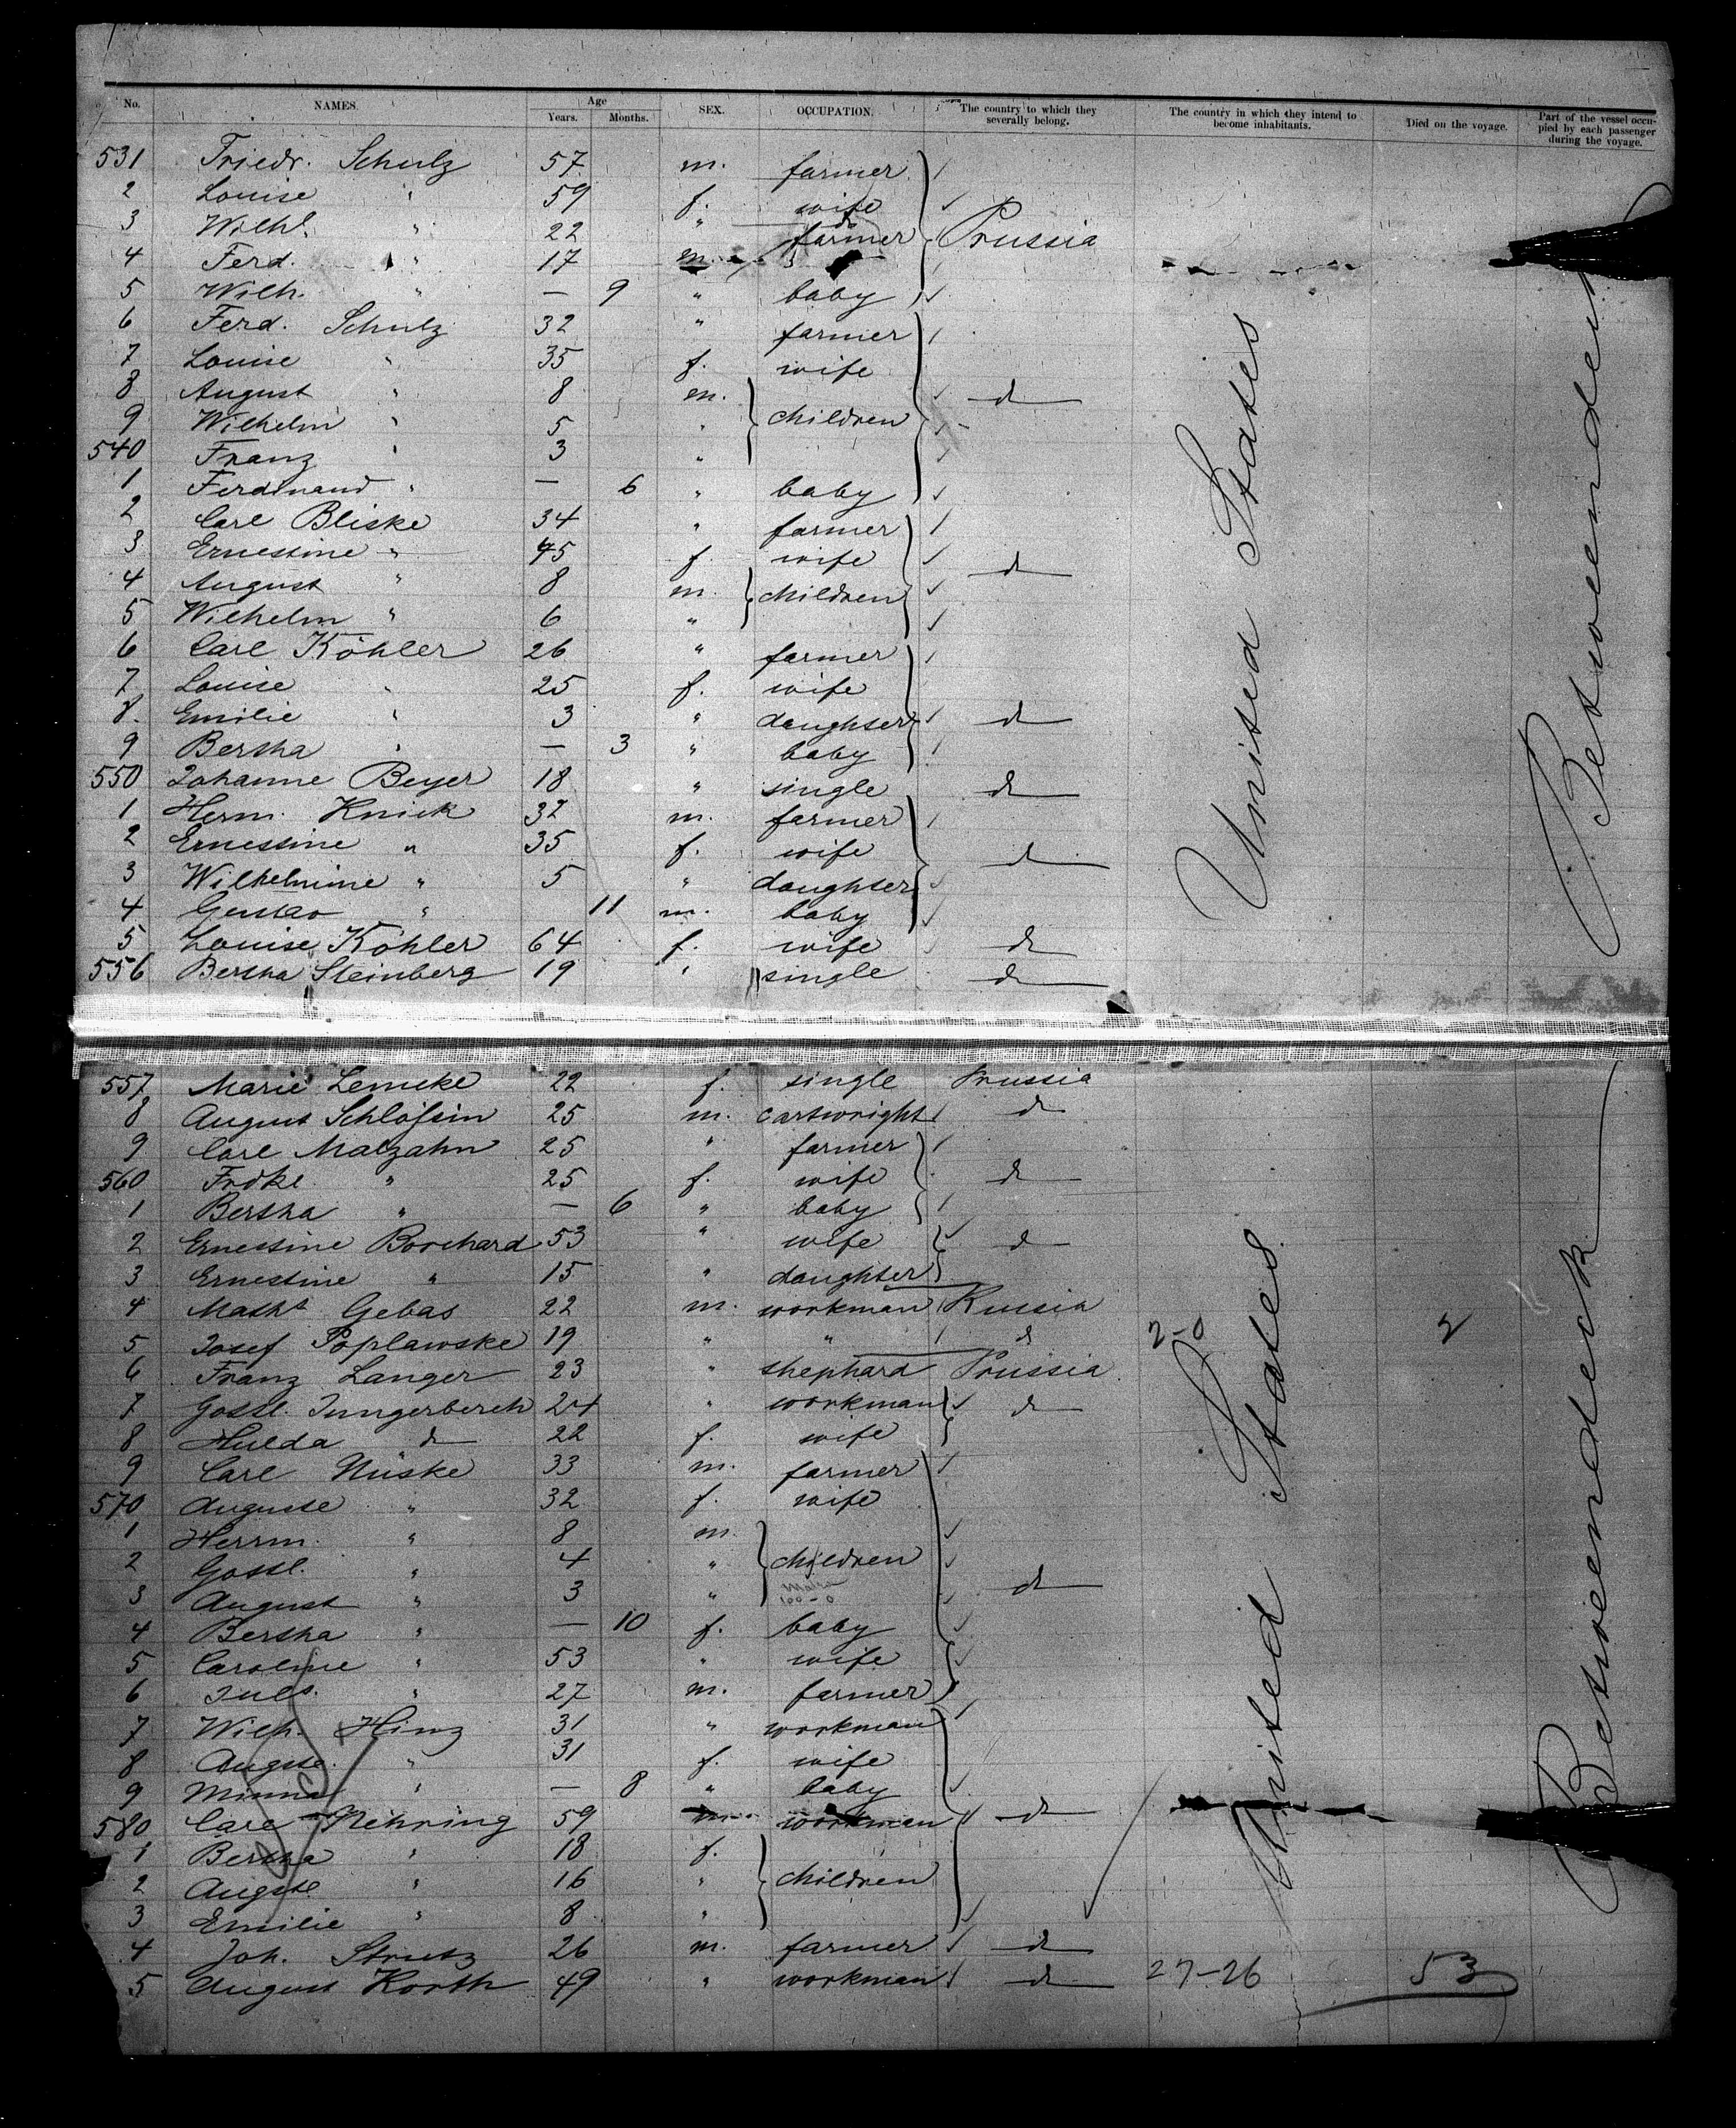 No. NAMES. Age Years. Months. SEX. OCCUPATION. The country to which they severally belong. The country in which they intend to become inhabitants. Died on the voyage. Part of the vessel occupied by each passenger during the voyage.
531 Friedr. Schulz 57 m. farmer
2 Louise " 59 f. wife
3 Wilh. " 22 " farmer Prussia
4 Ferd. " 17 m.
5 Wilh. " — 9 " baby
6 Ferd. Schulz 32 " farmer
7 Louise " 35 f. wife
8 August " 8 m. d
9 Wilhelm " 5 " children
540 Franz " 3 "
1 Ferdinand " — 6 " baby
2 Carl Bliske 34 " farmer
3 Ernestine " 45 f. wife d
4 August " 8 m. children
5 Wilhelm " 6 "
6 Carl Köhler 26 " farmer
7 Louise " 25 f. wife
8. Emilie " 3 " daughter d
9 Bertha " — 3 " baby
550 Johanne Beyer 18 " single d
1 Herm. Knick 32 m. farmer
2 Ernestine " 35 f. wife d
3 Wilhelmine " 5 " daughter
4 Gustav " 11 m. baby
5 Louise Köhler 64 f. wife d
556 Bertha Steinberg 19 " single d
United States
Betweendeck
557 Marie Lemcke 22 f. single Prussia
8 August Schlössin 25 m. cartwright d
9 Carl Malzahn 25 " farmer
560 Frdke. " 25 f. wife d
1 Bertha " — 6 " baby
2 Ernestine Borchard 53 " wife d
3 Ernestine " 15 " daughter
4 Math. Gebas 22 m. workman Russia
5 Josef Poplawske 19 " " d 2-0 2
6 Franz Langer 23 " shephard Prussia
7 Gottl. Jungerberch 24 " workman d
8 Hulda d 22 f. wife
9 Carl Nüske 33 m. farmer
570 Auguste " 32 f. wife
1 Herrm. " 8 m.
2 Gottl. " 4 " children
3 August " 3 " d
4 Bertha " — 10 f. baby
5 Caroline " 53 " wife
6 Juls. " 27 m. farmer
7 Wilh. Hinz 31 " workman
8 Augste. " 31 f. wife
9 Minna " — 8 " baby
580 Carl Nehring 59 m. workman d
1 Bertha " 18 f.
2 Augste " 16 " children
3 Emilie " 8 "
4 Joh. Strutz 26 m. farmer d
5 August Korth 49 " workman d 27-26 53
United States
Betweendeck